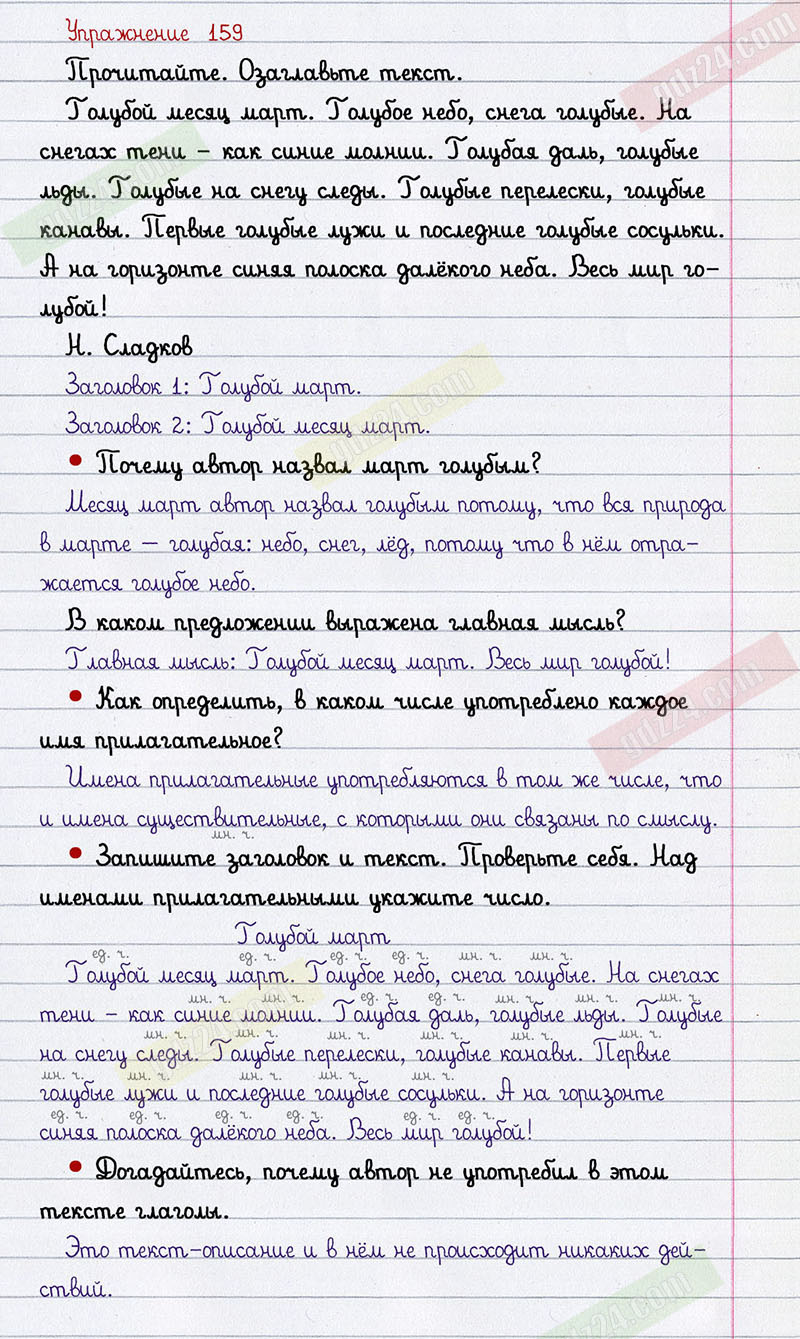 Упражнение 159
Прочитайте. Озаглавьте текст.
Голубой месяц март. Голубое небо, снега голубые. На
снегах тени – как синие молнии. Голубая даль, голубые
льды. Голубые на снегу следы. Голубые перелески, голубые
канавы. Первые голубые лужи и последние голубые сосульки.
А на горизонте синяя полоска далёкого неба. Весь мир го-
лубой!
Н. Сладков
Заголовок 1: Голубой март.
Заголовок 2: Голубой месяц март.
• Почему автор назвал март голубым?
Месяц март автор назвал голубым потому, что вся природа
в марте – голубая: небо, снег, лёд, потому что в нём отра-
жается голубое небо.
В каком предложении выражена главная мысль?
Главная мысль: Голубой месяц март. Весь мир голубой!
• Как определить, в каком числе употреблено каждое
имя прилагательное?
Имена прилагательные употребляются в том же числе, что
и имена существительные, с которыми они связаны по смыслу.
мн. ч.
• Запишите заголовок и текст. Проверьте себя. Над
именами прилагательными укажите число.
Голубой март
ед. ч. ед. ч. ед. ч. ед. ч. мн. ч. мн. ч.
Голубой месяц март. Голубое небо, снега голубые. На снегах
мн. ч. мн. ч. ед. ч. ед. ч. мн. ч. мн. ч. мн. ч.
тени – как синие молнии. Голубая даль, голубые льды. Голубые
мн. ч. мн. ч. мн. ч. мн. ч. мн. ч. мн. ч.
на снегу следы. Голубые перелески, голубые канавы. Первые
мн. ч. мн. ч. мн. ч. мн. ч. мн. ч.
голубые лужи и последние голубые сосульки. А на горизонте
ед. ч. ед. ч. ед. ч. ед. ч. ед. ч. ед. ч.
синяя полоска далёкого неба. Весь мир голубой!
• Догадайтесь, почему автор не употребил в этом
тексте глаголы.
Это текст-описание и в нём не происходит никаких дей-
ствий.
gdz24.com
gdz24.com
gdz24.com
gdz24.com
gdz24.com
gdz24.com